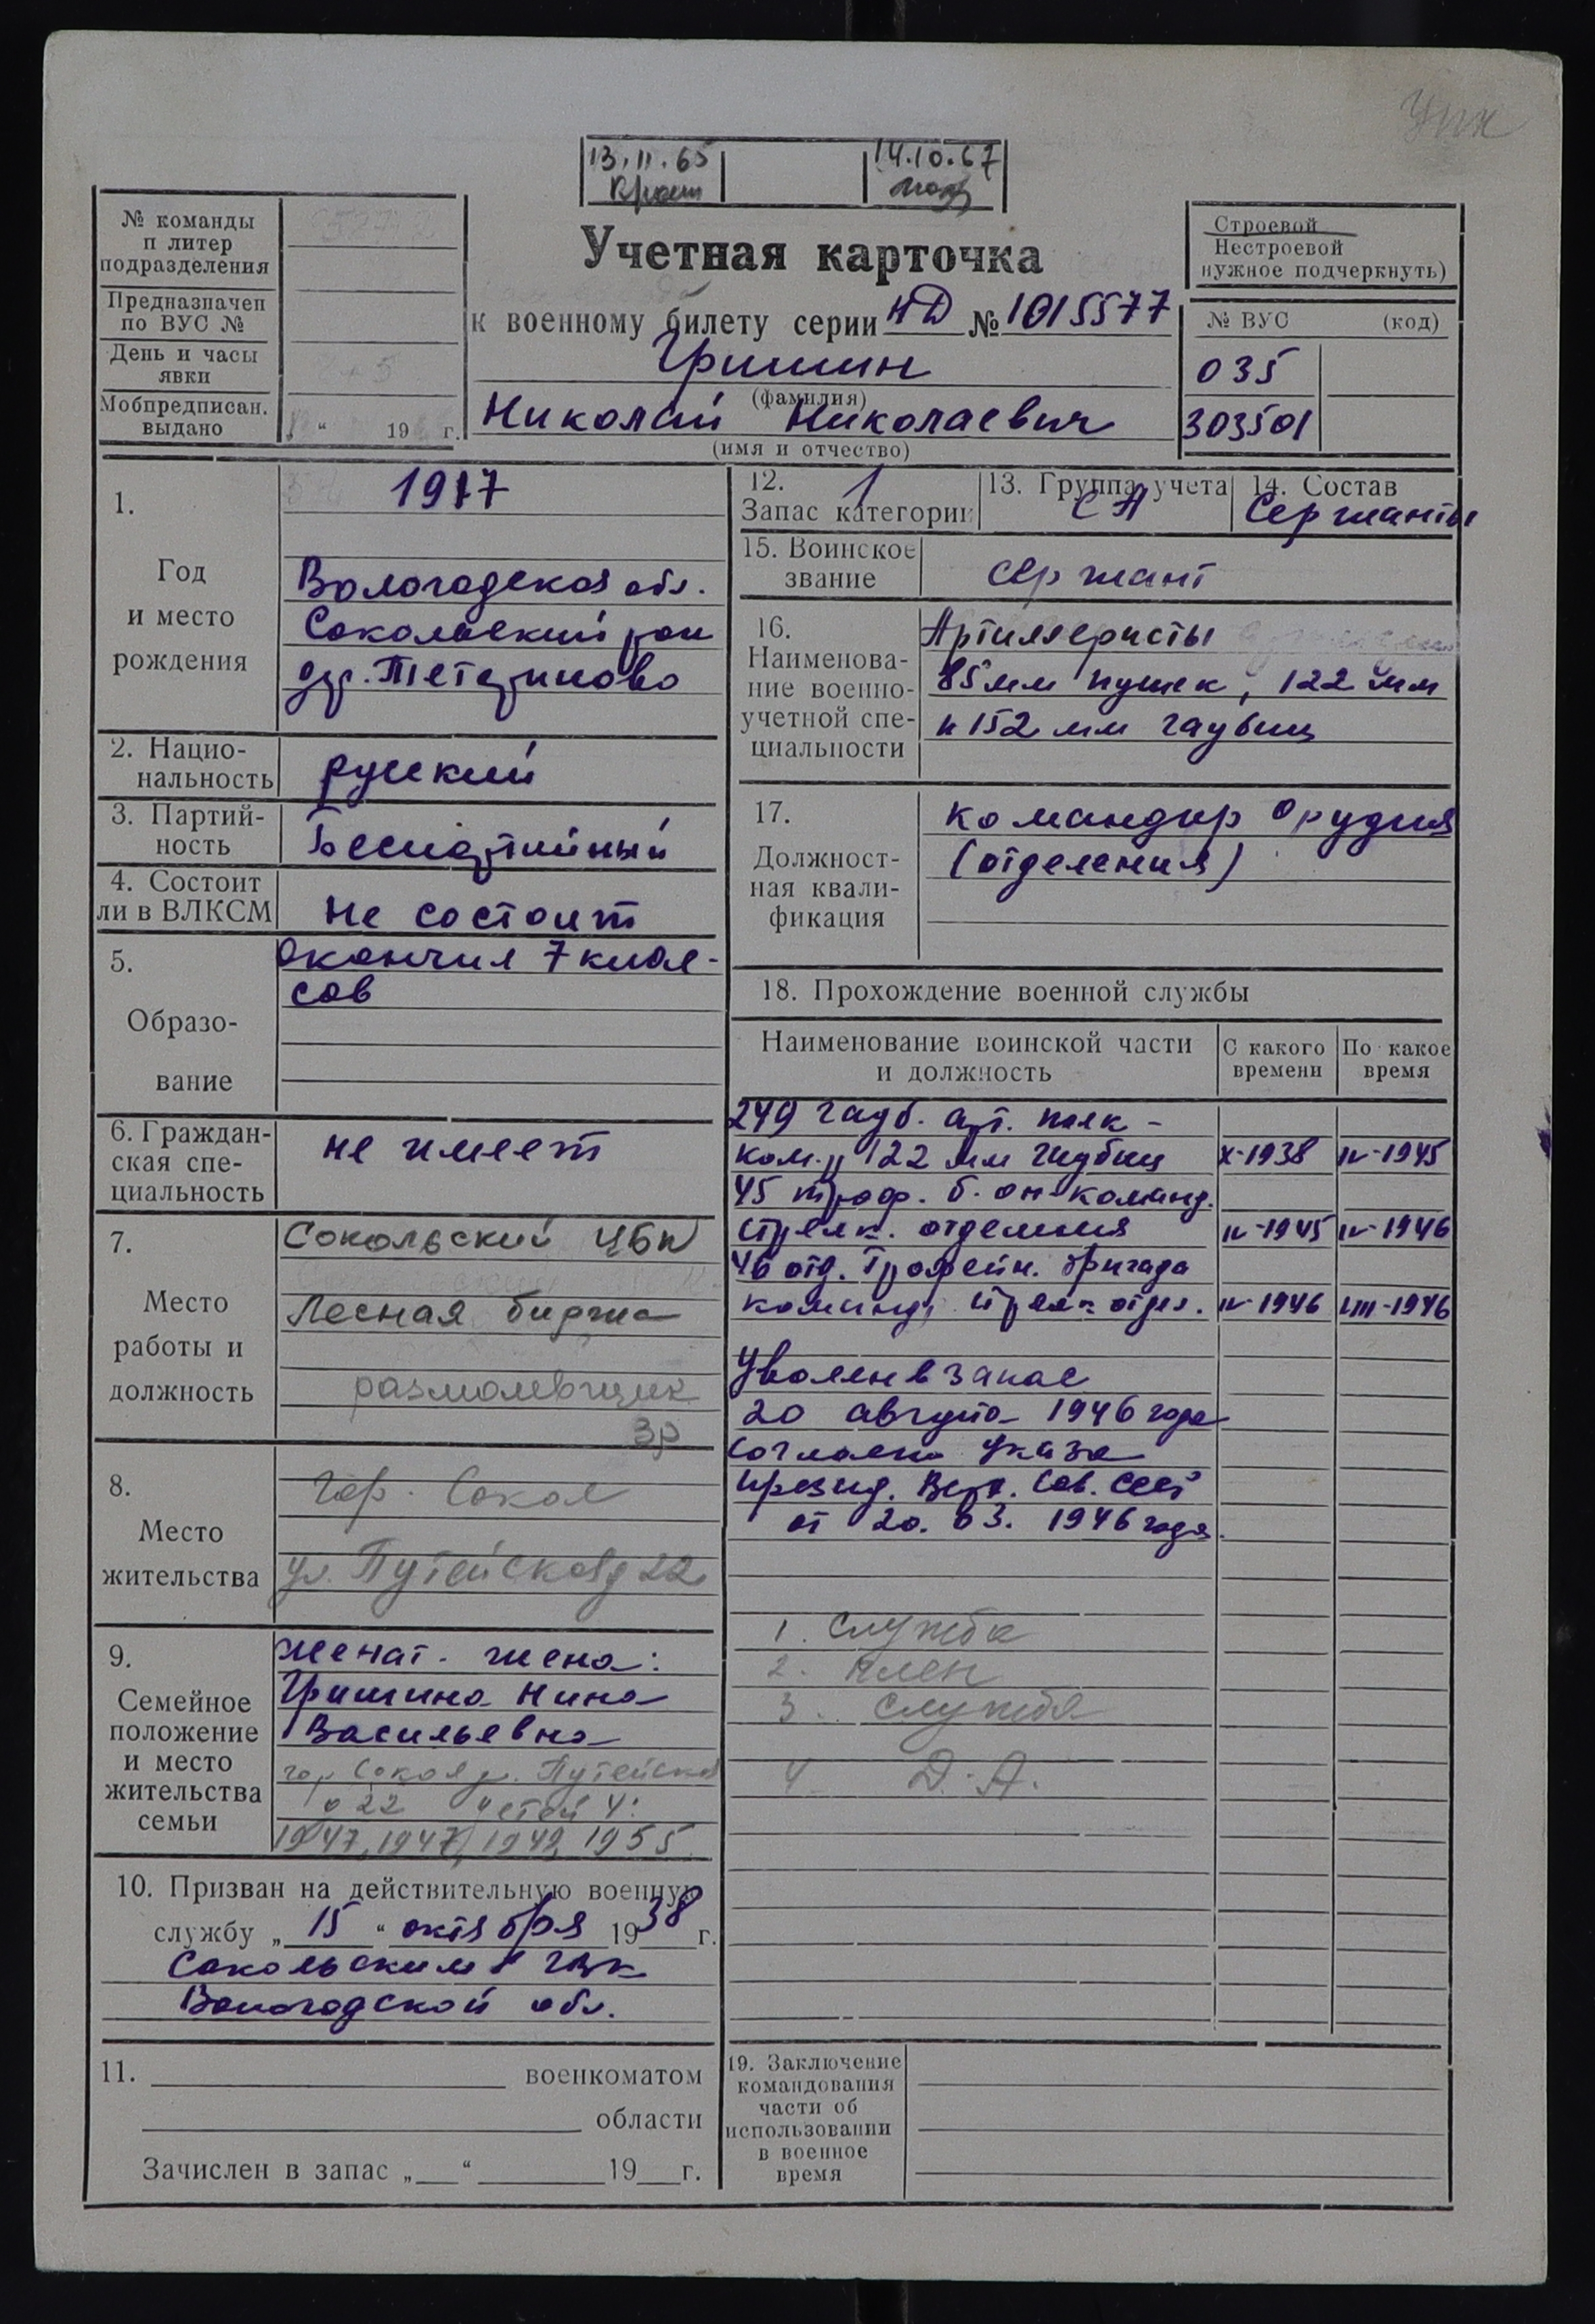 13.11.65
14.10.67
№ команды
п литер
подразделения
Предназначен
по ВУС №
День и часы
явки
Мобпредписан.
выдано
„ “ 19 г.
Учетная карточка
к военному билету серии НД № 1015577
Гришин
(фамилия)
Николай Николаевич
(имя и отчество)
Строевой
Нестроевой
нужное подчеркнуть)
№ ВУС (код)
035
303501
1.
Год
и место
рождения
1917
Вологодская обл.
Сокольский рон
дер.
2. Нацио-
нальность
русский
3. Партий-
ность
Беспартийный
4. Состоит
ли в ВЛКСМ
не состоит
5.
Образо-
вание
окончил 7 клас-
сов
6. Граждан-
ская спе-
циальность
не имеет
7.
Место
работы и
должность
Сокольский ЦБК
Лесная биржа
размольщик
3р
8.
Место
жительства
гор. Сокол
ул. Путейская д 22
9.
Семейное
положение
и место
жительства
семьи
женат. жена:
Гришина Нина
Васильевна
гор Сокол ул. Путейская
д 22 детей 4:
1947, 1947, 1955
10. Призван на действительную военную
службу „ 15 “ октября 1938 г.
Сокольским ГВК
Вологодской обл.
11. военкоматом
области
Зачислен в запас „ “ 19 г.
12. 1
Запас категории
13. Группа учета
СА
14. Состав
Сержанты
15. Воинское
звание
сержант
16.
Наименова-
ние военно-
учетной спе-
циальности
Артиллеристы
85 мм пушек, 122 мм
и 152 мм гаубиц
17.
Должност-
ная квали-
фикация
командир орудия
(отделения)
18. Прохождение военной службы
Наименование воинской части
и должность
С какого
времени
По какое
время
249 гауб. ар. полк -
ком.р 122 мм гаубиц X-1938 IV-1945
45 троф. б. он команд.
стрелк. отделения IV-1945 IV-1946
46 отд. Трофейн. бригада
команд. стрелк отдел. IV-1946 VIII-1946
Уволен в запас
20 августа 1946 года
согласно Указа
презид. Верх. Сов. СССР
от 20. 03. 1946 года.
1. служба
2. плен
3. служба
4 Д. А.
19. Заключение
командования
части об
использовании
в военное
время